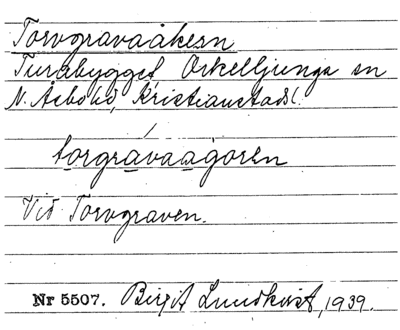 Torvgravaåkern
Turabygget Örkelljunga sn
N. Åsbo hd, Kristianstads l.
tørgravaagøren
Vid Torvgraven.
Nr 5507. Birgit Lundkvist, 1939.